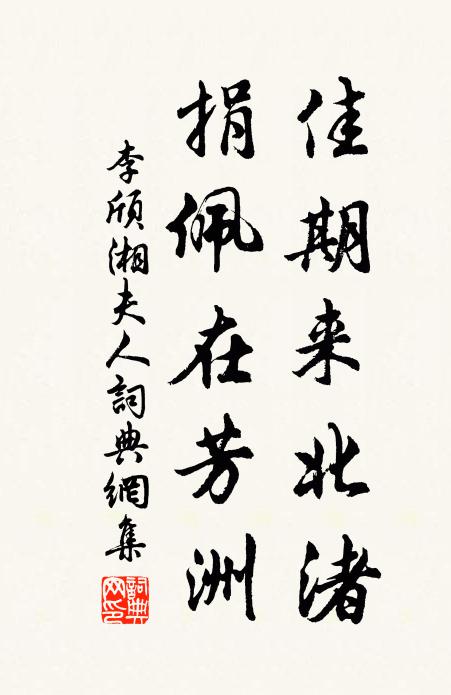 佳期来北渚
捐佩在芳洲
李頎湘夫人詞典網集
詞典网印